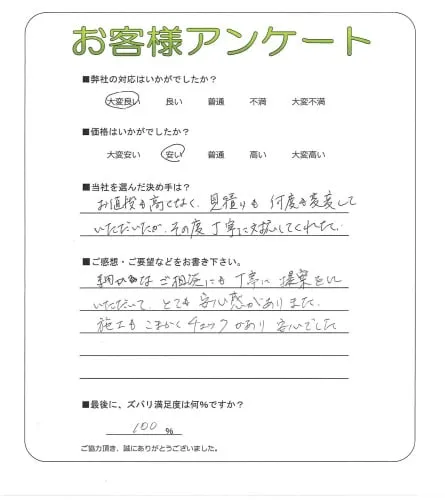 お客様アンケート
■弊社の対応はいかがでしたか？
大変良い 良い 普通 不満 大変不満
■価格はいかがでしたか？
大変安い 安い 普通 高い 大変高い
■当社を選んだ決め手は？
お値段も高くなく、見積りも何度も変更して
いただいたが、その度丁寧に対応してくれた。
■ご感想・ご要望などをお書き下さい。
細かなご相談にも丁寧に提案をし
いただいて、とても安心感がありました。
施工もこまかくチェックがあり安心でした
■最後に、ズバリ満足度は何%ですか？
100 %
ご協力頂き、誠にありがとうございました。